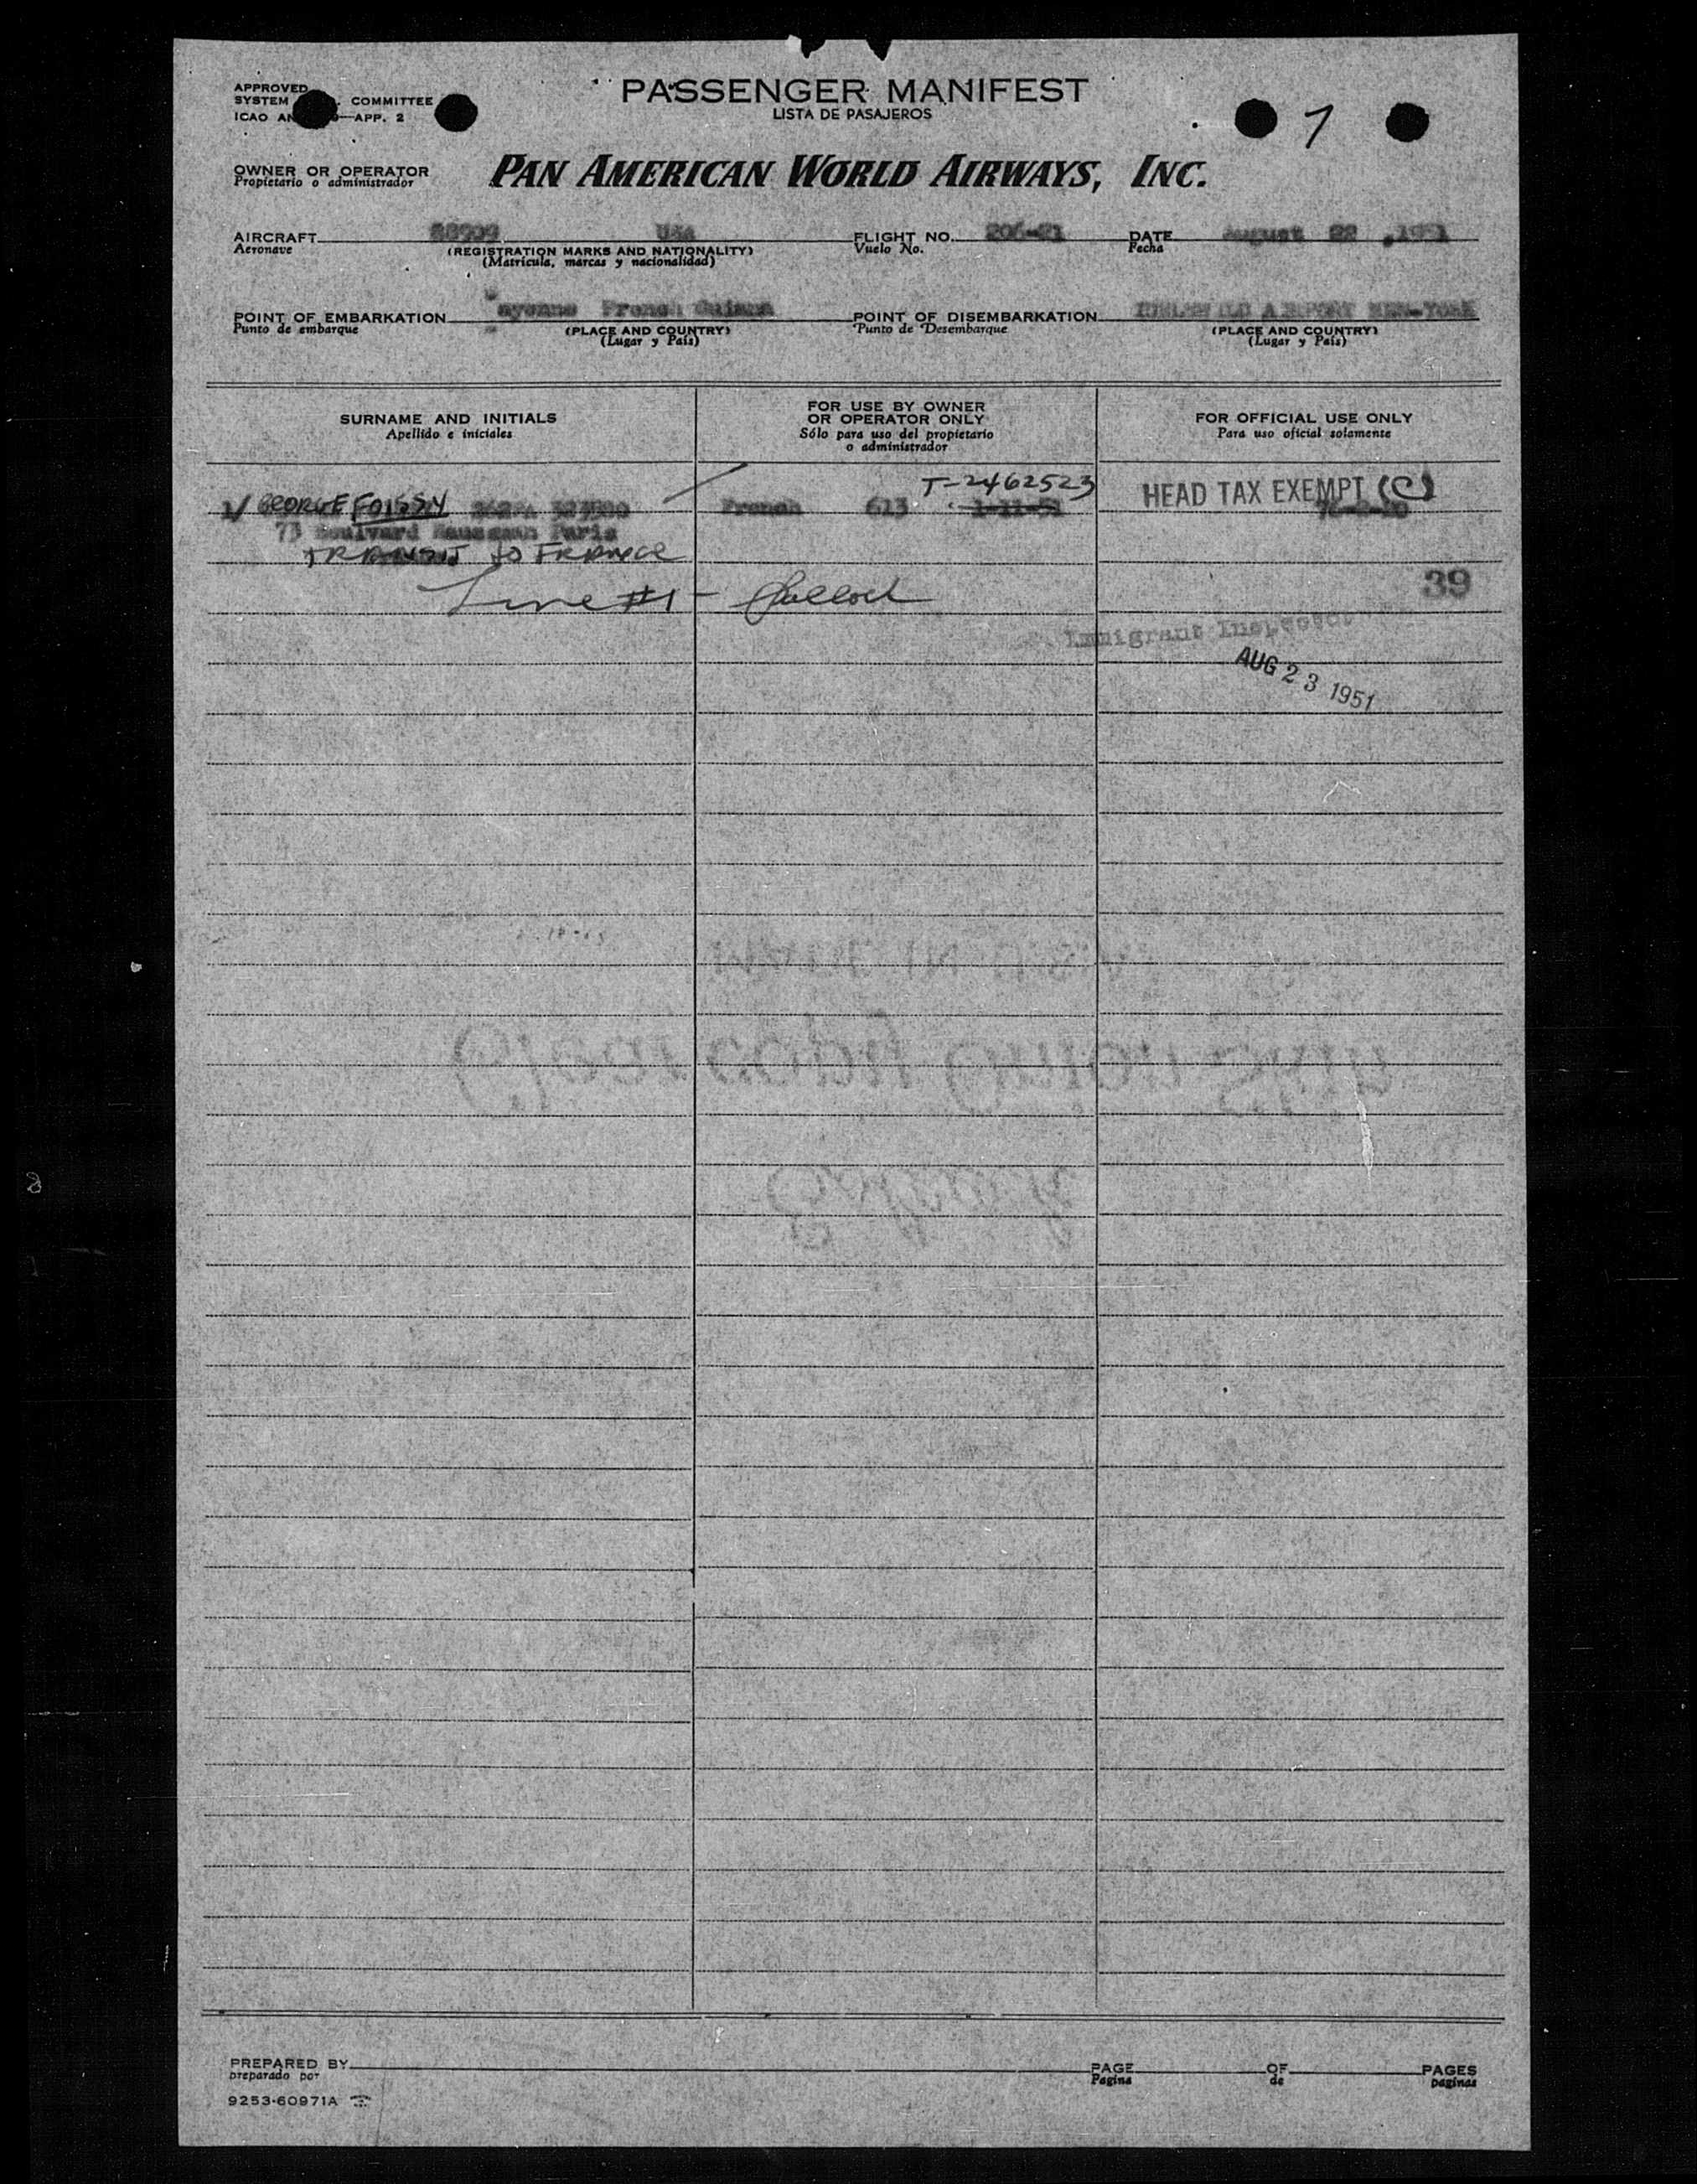 APPROVED
SYSTEM COMMITTEE
ICAO AN —APP. 2
PASSENGER MANIFEST
LISTA DE PASAJEROS
7
OWNER OR OPERATOR
Propietario o administrador
PAN AMERICAN WORLD AIRWAYS, INC.
AIRCRAFT 88909 USA FLIGHT NO. 206-21 DATE August 22 ,1951
Aeronave (REGISTRATION MARKS AND NATIONALITY) Vuelo No. Fecha
(Matrícula, marcas y nacionalidad)
POINT OF EMBARKATION ayenne French Guiana POINT OF DISEMBARKATION AIRPORT NEW-YORK
Punto de embarque (PLACE AND COUNTRY) Punto de Desembarque (PLACE AND COUNTRY)
(Lugar y País) (Lugar y País)
SURNAME AND INITIALS
Apellido e iniciales
FOR USE BY OWNER
OR OPERATOR ONLY
Sólo para uso del propietario
o administrador
FOR OFFICIAL USE ONLY
Para uso oficial solamente
T-2462523
HEAD TAX EXEMPT (C)
1/ GEORGE FOISSY French 613 1-11-51
73 Boulvard Haussman Paris
TRANSIT to FRANCE
39
Line #1 -
Immigrant Inspector
AUG 23 1951
PREPARED BY PAGE OF PAGES
preparado por Pagina de paginas
9253-60971A